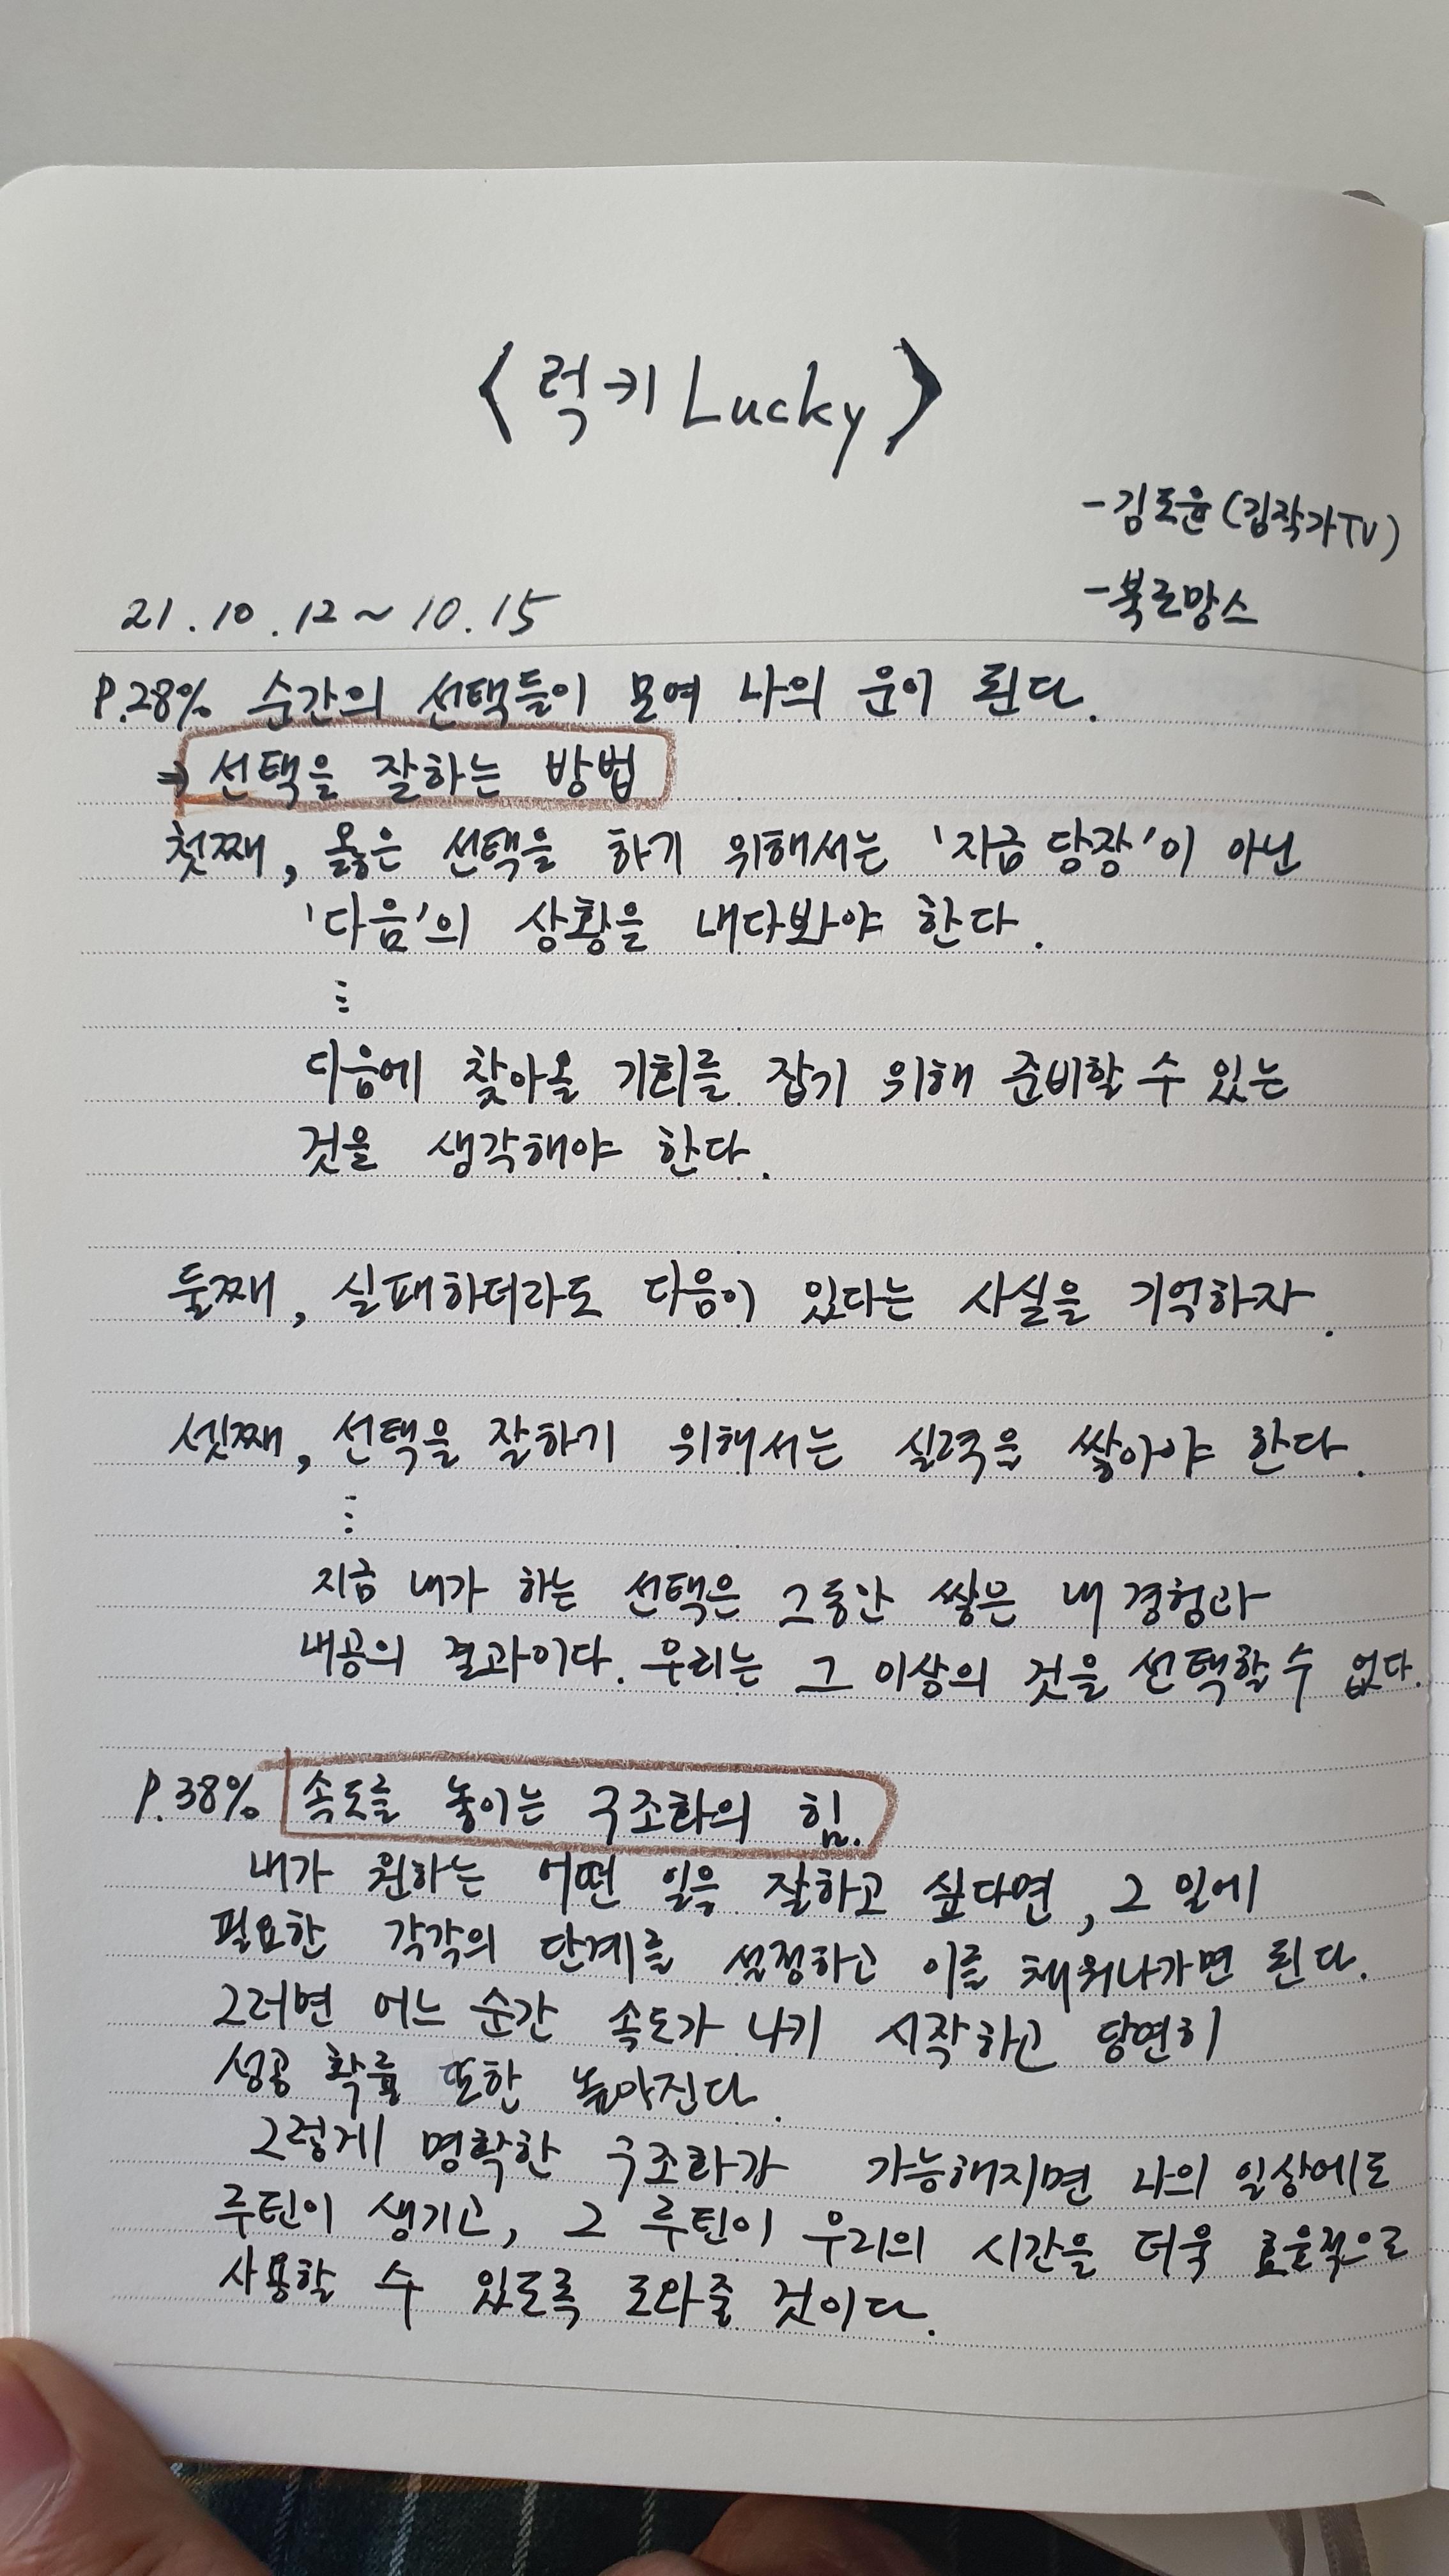 <럭키 Lucky>
-김도윤(김작가TV)
-북로망스
21.10.12~10.15
P.28% 순간의 선택들이 모여 나의 운이 된다.
⇒ 선택을 잘하는 방법
첫째, 옳은 선택을 하기 위해서는 '지금 당장'이 아닌
'다음'의 상황을 내다봐야 한다.
⋮
다음에 찾아올 기회를 잡기 위해 준비할 수 있는
것을 생각해야 한다.
둘째, 실패하더라도 다음이 있다는 사실을 기억하자.
셋째, 선택을 잘하기 위해서는 실력을 쌓아야 한다.
⋮
지금 내가 하는 선택은 그동안 쌓은 내 경험과
내공의 결과이다. 우리는 그 이상의 것을 선택할 수 없다.
P.38% 속도를 높이는 구조화의 힘.
내가 원하는 어떤 일을 잘하고 싶다면, 그 일에
필요한 각각의 단계를 설정하고 이를 채워나가면 된다.
그러면 어느 순간 속도가 나기 시작하고 당연히
성공 확률 또한 높아진다.
그렇게 명확한 구조화가 가능해지면 나의 일상에도
루틴이 생기고, 그 루틴이 우리의 시간을 더욱 효율적으로
사용할 수 있도록 도와줄 것이다.